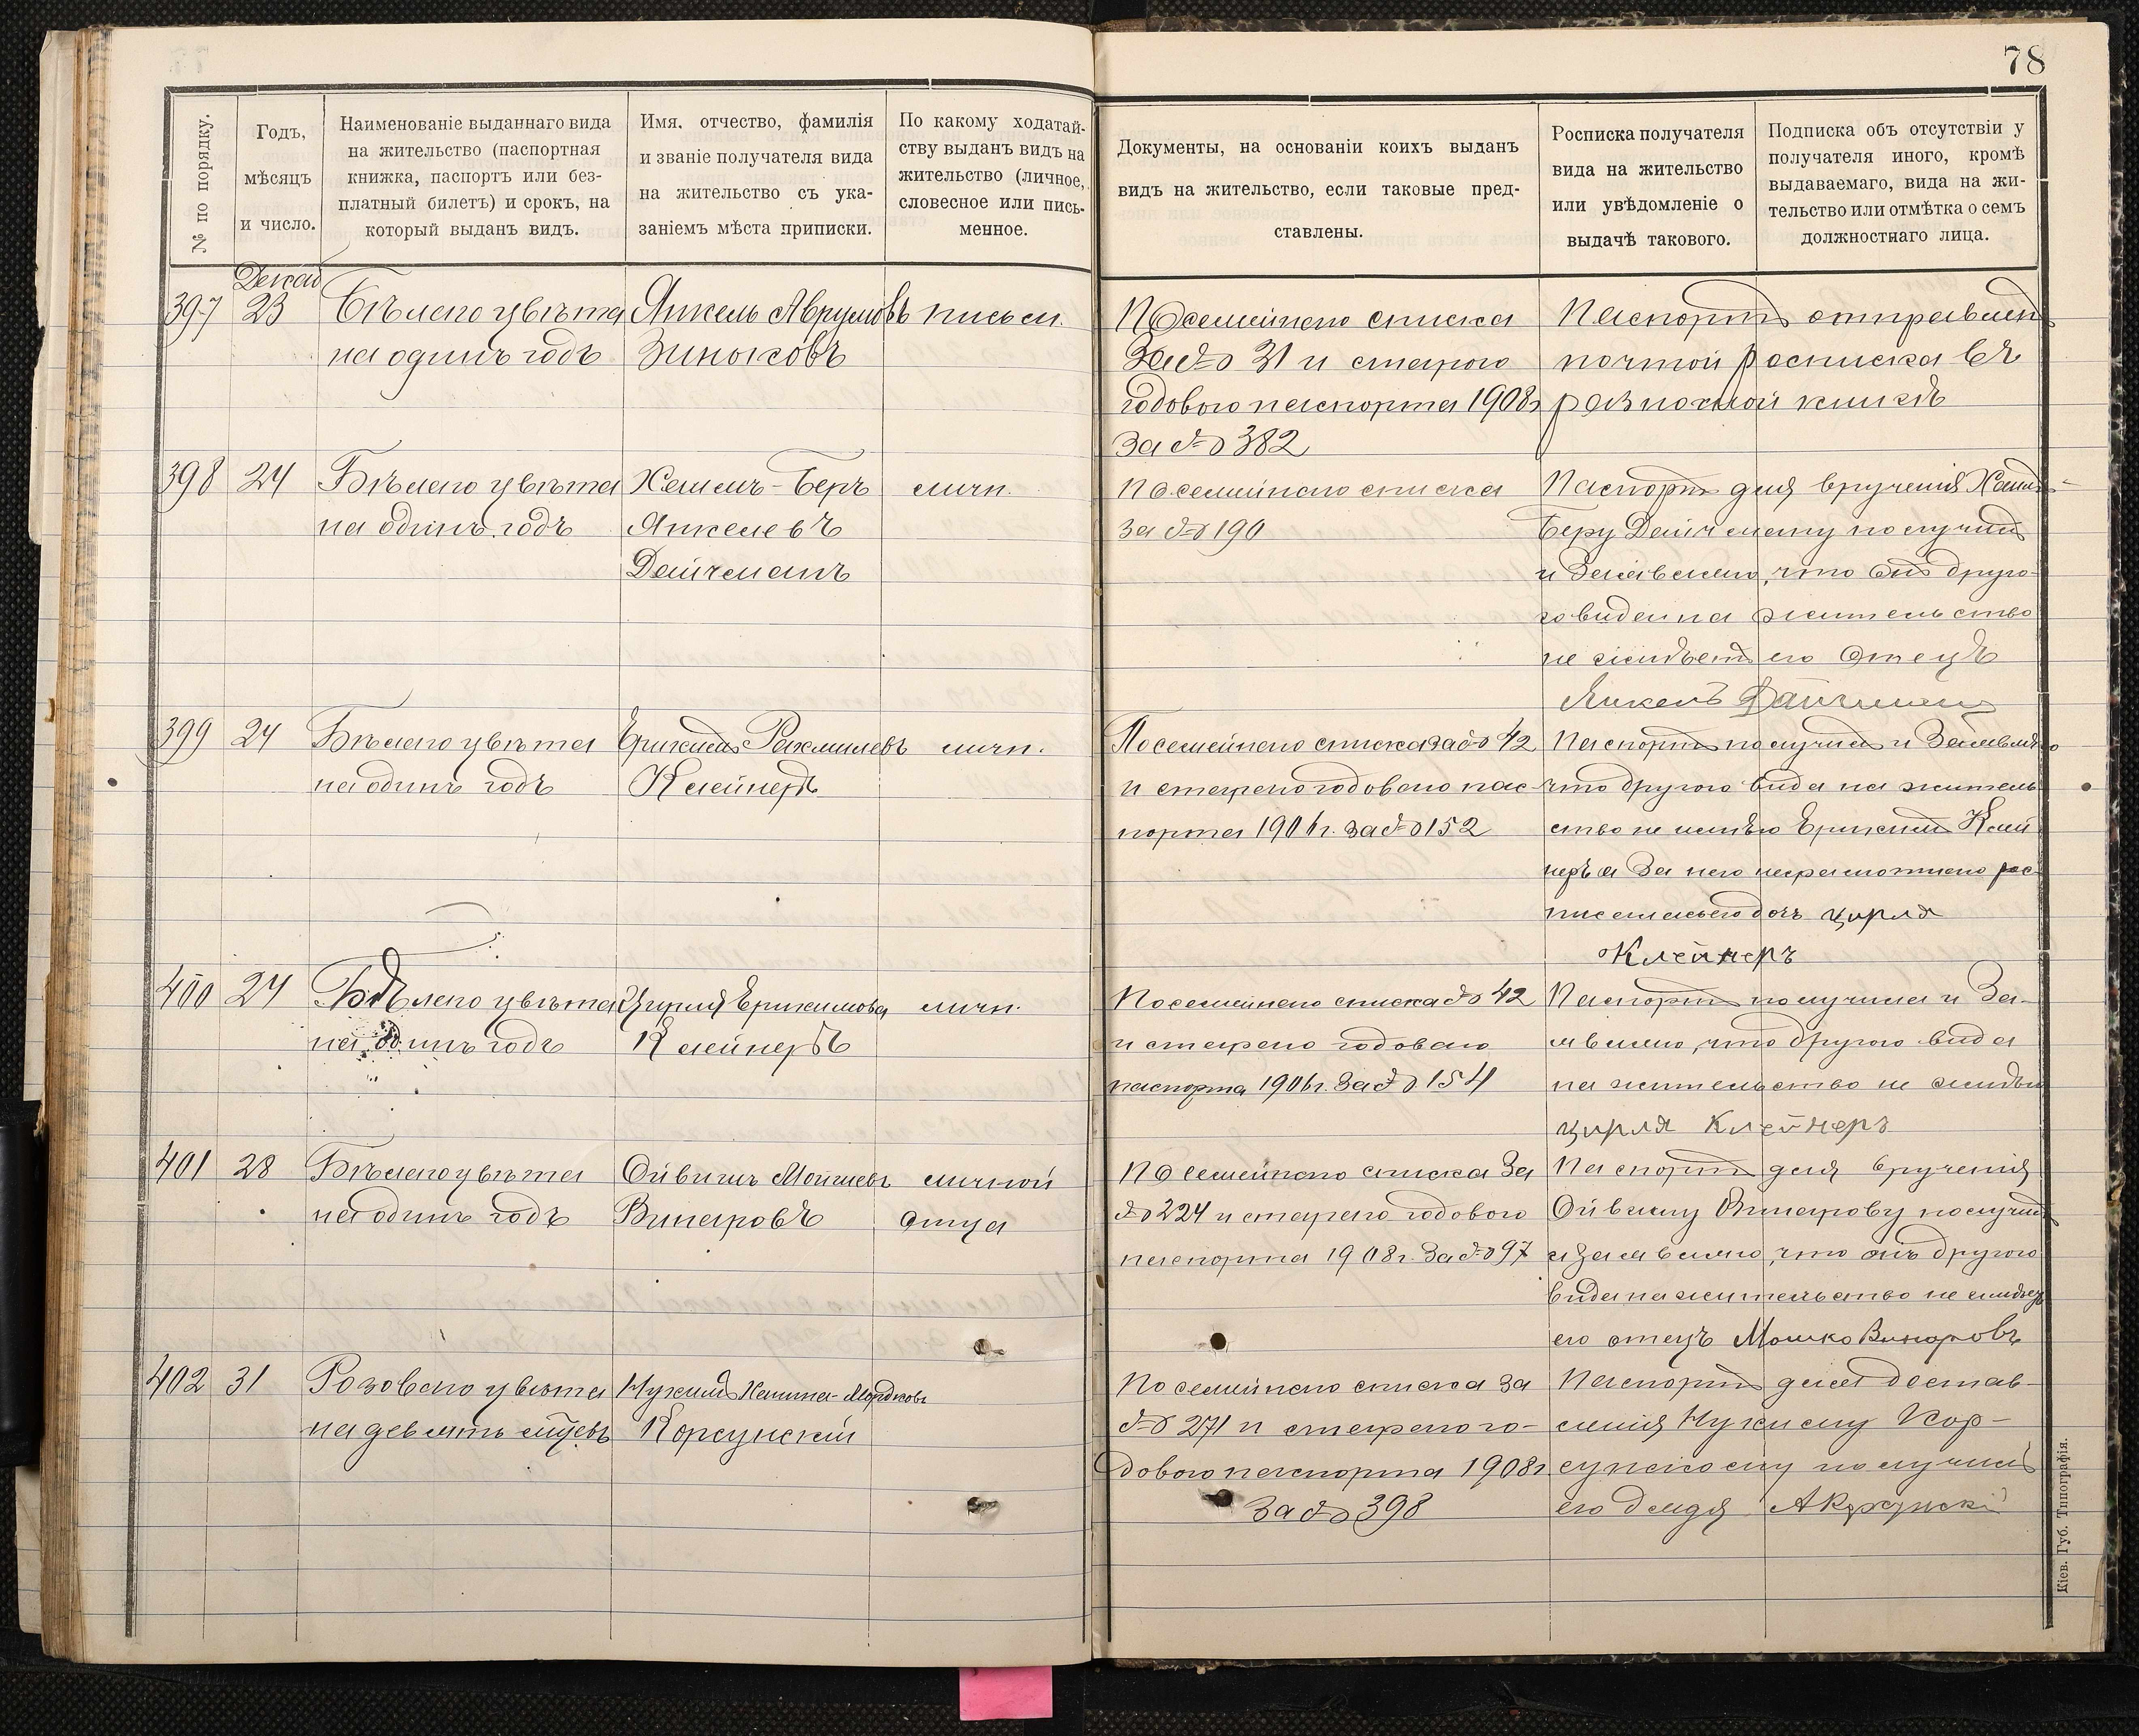 78
№ по порядку.
Годъ,
мѣсяцъ
и число.
Наименованіе выданнаго вида
на жительство (паспортная
книжка, паспортъ или без-
платный билетъ) и срокъ, на
который выданъ видъ.
Имя, отчество, фамилія
и званіе получателя вида
на жительство съ ука-
заніемъ мѣста приписки.
По какому ходатай-
ству выданъ видъ на
жительство (личное,
словесное или пись-
менное.
Документы, на основаніи коихъ выданъ
видъ на жительство, если таковые пред-
ставлены.
Росписка получателя
вида на жительство
или увѣдомленіе о
выдачѣ такового.
Подписка объ отсутствіи у
получателя иного, кромѣ
выдаваемаго, вида на жи-
тельство или отмѣтка о семъ
должностнаго лица.
Декаб
397 23 Бѣлаго цвѣта
на одинъ годъ
Янкель Аврумовъ
Зиньковъ
письм.
По семейнаго списка
за № 31 и старого
годового паспорта 1908г
за № 382
Паспортъ отправленъ
почтой росписка въ
разносной книгѣ
398 24 Бѣлаго цвѣта
на одинъ годъ
Хаимъ-Беръ
Янкелевъ
Дайчманъ
личн.
По семейнаго списка
за № 190
Паспортъ для врученія Хаимъ-
Беру Дайчману получилъ
и Заявляю, что онъ друго-
го вида на жительство
не имѣетъ его Отецъ
Янкель Дайчман
399 24 Бѣлаго цвѣта
на одинъ годъ
Ерихимъ Рахмилевъ
Клейнеръ
личн.
По семейнаго списка за № 42
и стараго годоваго пас-
порта 1906г. за № 152
Паспортъ получилъ и Заявляю
что другого вида на житель
ство не имѣю Ерихимъ Клей
неръ а За него неграмотнаго рос
писалась его дочь Цирля
Клейнеръ
400 24 Бѣлаго цвѣта
на одинъ годъ
Цирля Ерихимова
Клейнеръ
личн.
По семейнаго списка № 42
и стараго годоваго
паспорта 1906г. За № 154
Паспортъ получила и За-
являю, что другого вида
на жительство не имѣю
Цирля Клейнеръ
401 28 Бѣлаго цвѣта
на одинъ годъ
Ойвишъ Мошковъ
Винаровъ
личной
отца
По семейнаго списка За
№ 224 и стараго годового
паспорта 1908г. За № 97
Паспортъ для врученія
Ойвишу Винарову получилъ
и заявляю, что онъ другого
вида на жительство не имѣетъ
его отецъ Мошко Винаровъ
402 31 Розоваго цвѣта
на девять мѣсяц
Нухимъ Мордковъ
Корсунскій
По семейнаго списка за
№ 271 и стараго го-
дового паспорта 1908г
За № 398
Паспортъ для достав-
ленія Нухиму Кор-
сунскому получилъ
его дядя А Корсунскі
Кіев. Губ. Типографія.